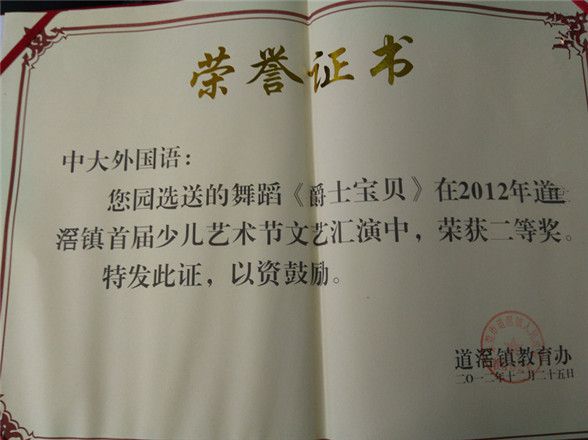 荣誉证书
中大外国语：
您园选送的舞蹈《爵士宝贝》在2012年道
滘镇首届少儿艺术节文艺汇演中，荣获二等奖。
特发此证，以资鼓励。
道滘镇教育办
二〇一二年十二月二十五日